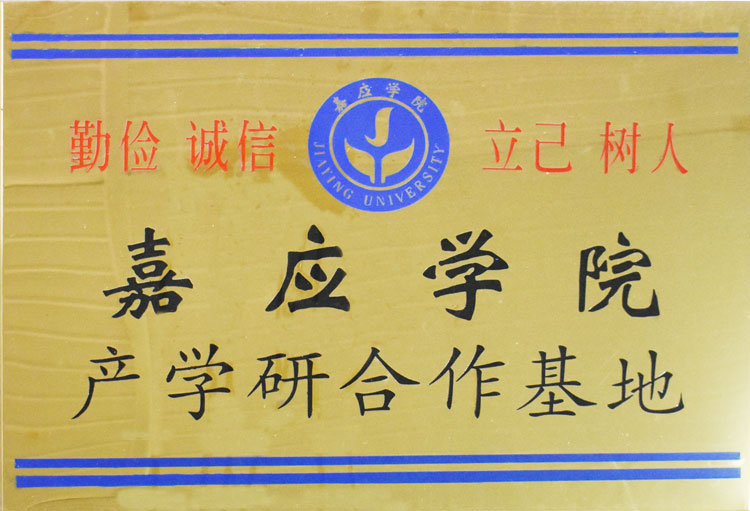 勤俭 诚信 立己 树人
嘉应学院
JIAYING UNIVERSITY
嘉应学院
产学研合作基地